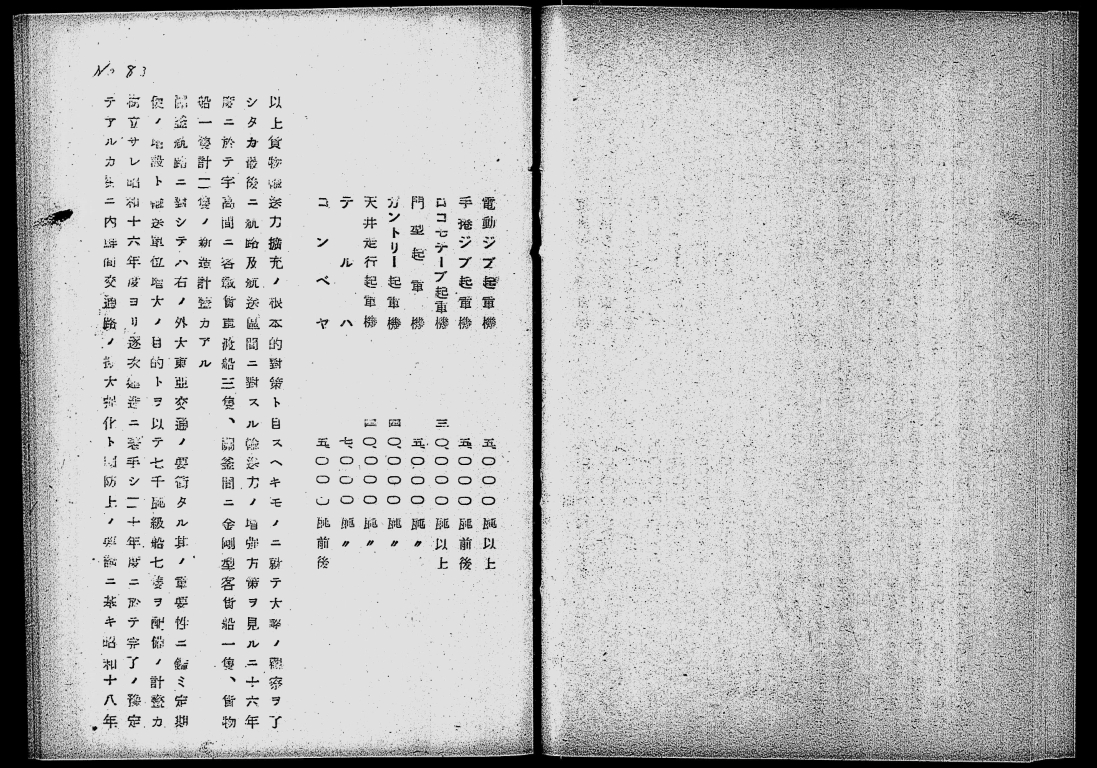 No 83
電動ジブ起重機 五〇〇〇瓲以上
手捲ジブ起重機 五〇〇〇瓲前後
ロコモチーブ起重機 三〇〇〇〇瓲以上
門型起重機 五〇〇〇瓲〃
ガントリー起重機 四〇〇〇〇瓲〃
天井走行起重機 四〇〇〇〇瓲〃
テルハ 七〇〇〇瓲〃
コンベヤ 五〇〇〇瓲前後
以上貨物輸送力擴充ノ根本的對策ト目スヘキモノニ就テ大略ノ觀察ヲ了
シタカ最後ニ航路及航送區間ニ對スル輸送力ノ增強方策ヲ見ルニ十六年
度ニ於テ宇高間ニ客載貨車渡船三隻、關釜間ニ金剛型客貨船一隻、貨物
船一隻計二隻ノ新造計畫カアル
關釜航路ニ對シテハ右ノ外大東亞交通ノ要衝タル其ノ重要性ニ鑑ミ定期
便ノ增設ト輸送單位增大ノ目的トヲ以テ七千瓲級船七隻ヲ配備ノ計畫カ
樹立サレ昭和十六年度ヨリ逐次建造ニ着手シ二十年度ニ於テ完了ノ豫定
テアルカ更ニ內鮮間交通路ノ擴大强化ト國防上ノ要請ニ基キ昭和十八年